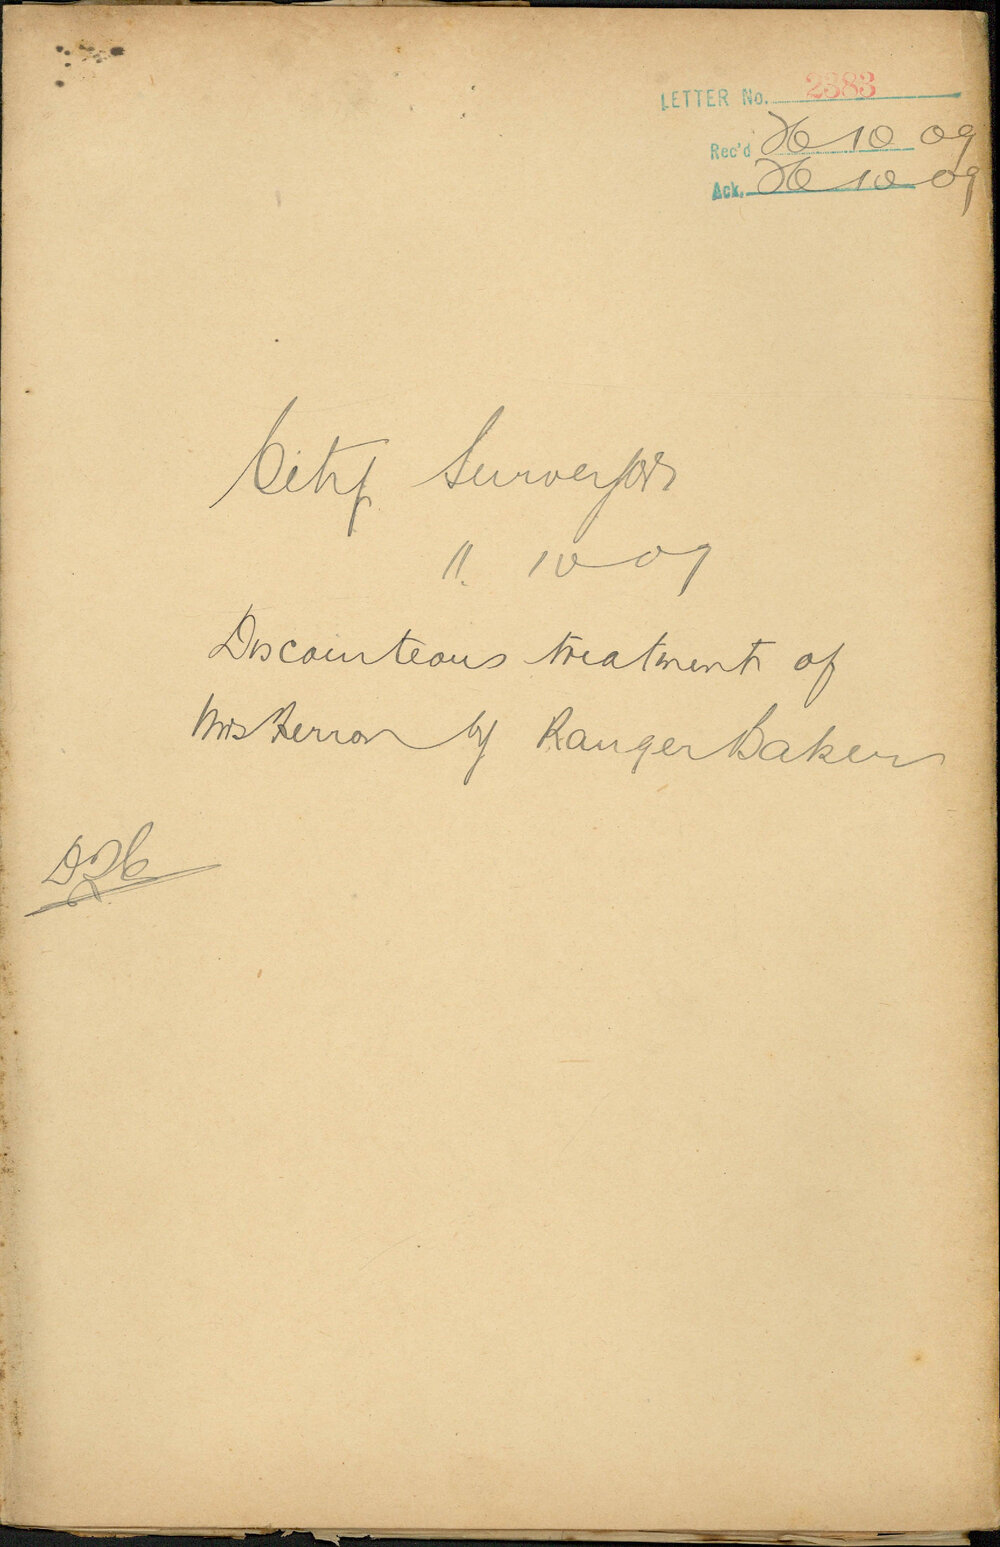 LETTER No. 2383
Rec'd 26 10 09
Ack. 26 10 09
City Surveyor
11. 10 09
Discourteous treatment of
Mrs Herron by Ranger Baker